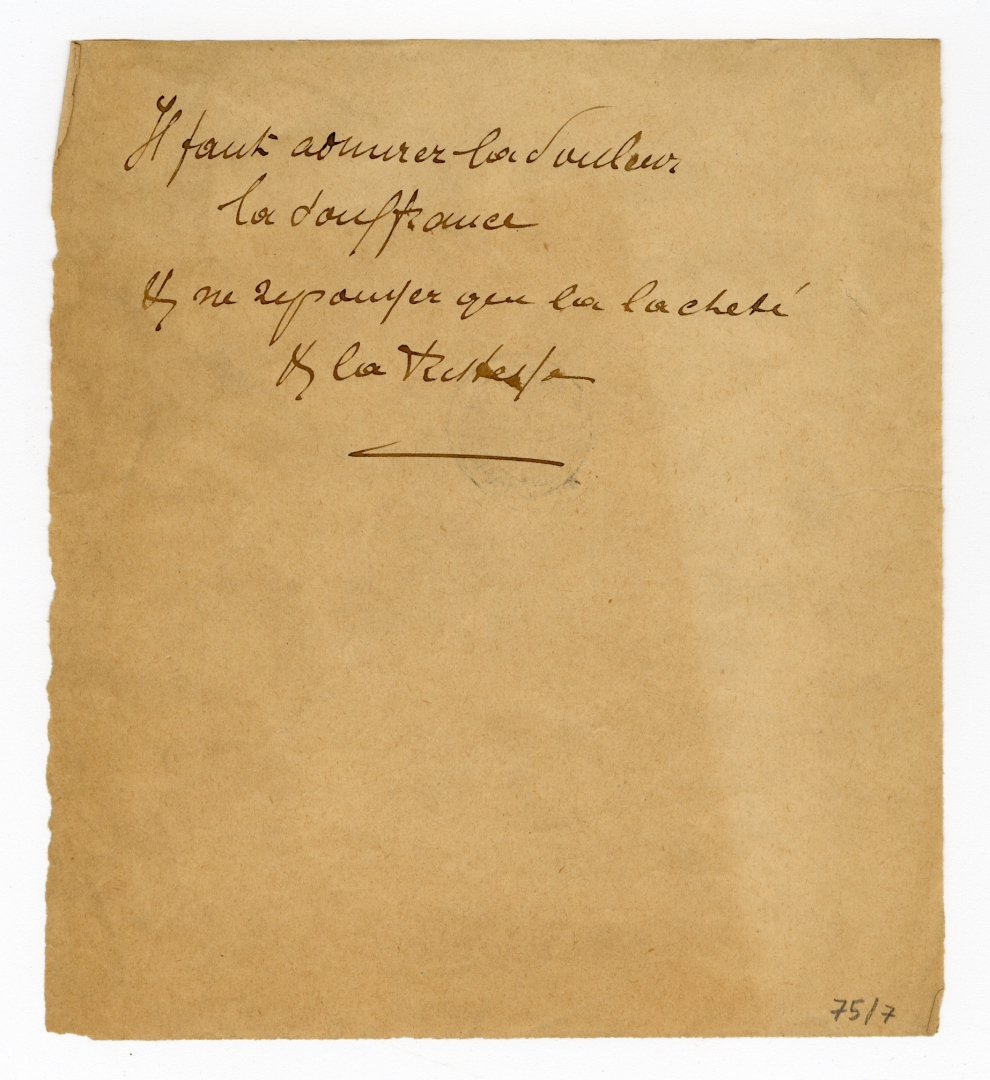 Il faut admirer la douleur
la souffrance
& ne repousser que la lacheté
& la tristesse
75/7